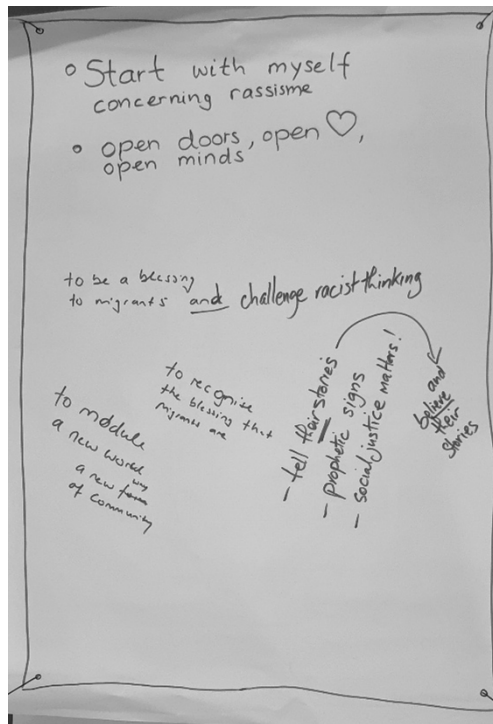 Start with myself
concerning rassisme
open doors, open ♡,
open minds
to be a blessing
to migrants and challenge racist thinking
to recognise
the blessing that
migrants are
to module
a new world
a new form
of community
- tell their stories
- prophetic signs
- social justice matters!
and
believe
their
stories